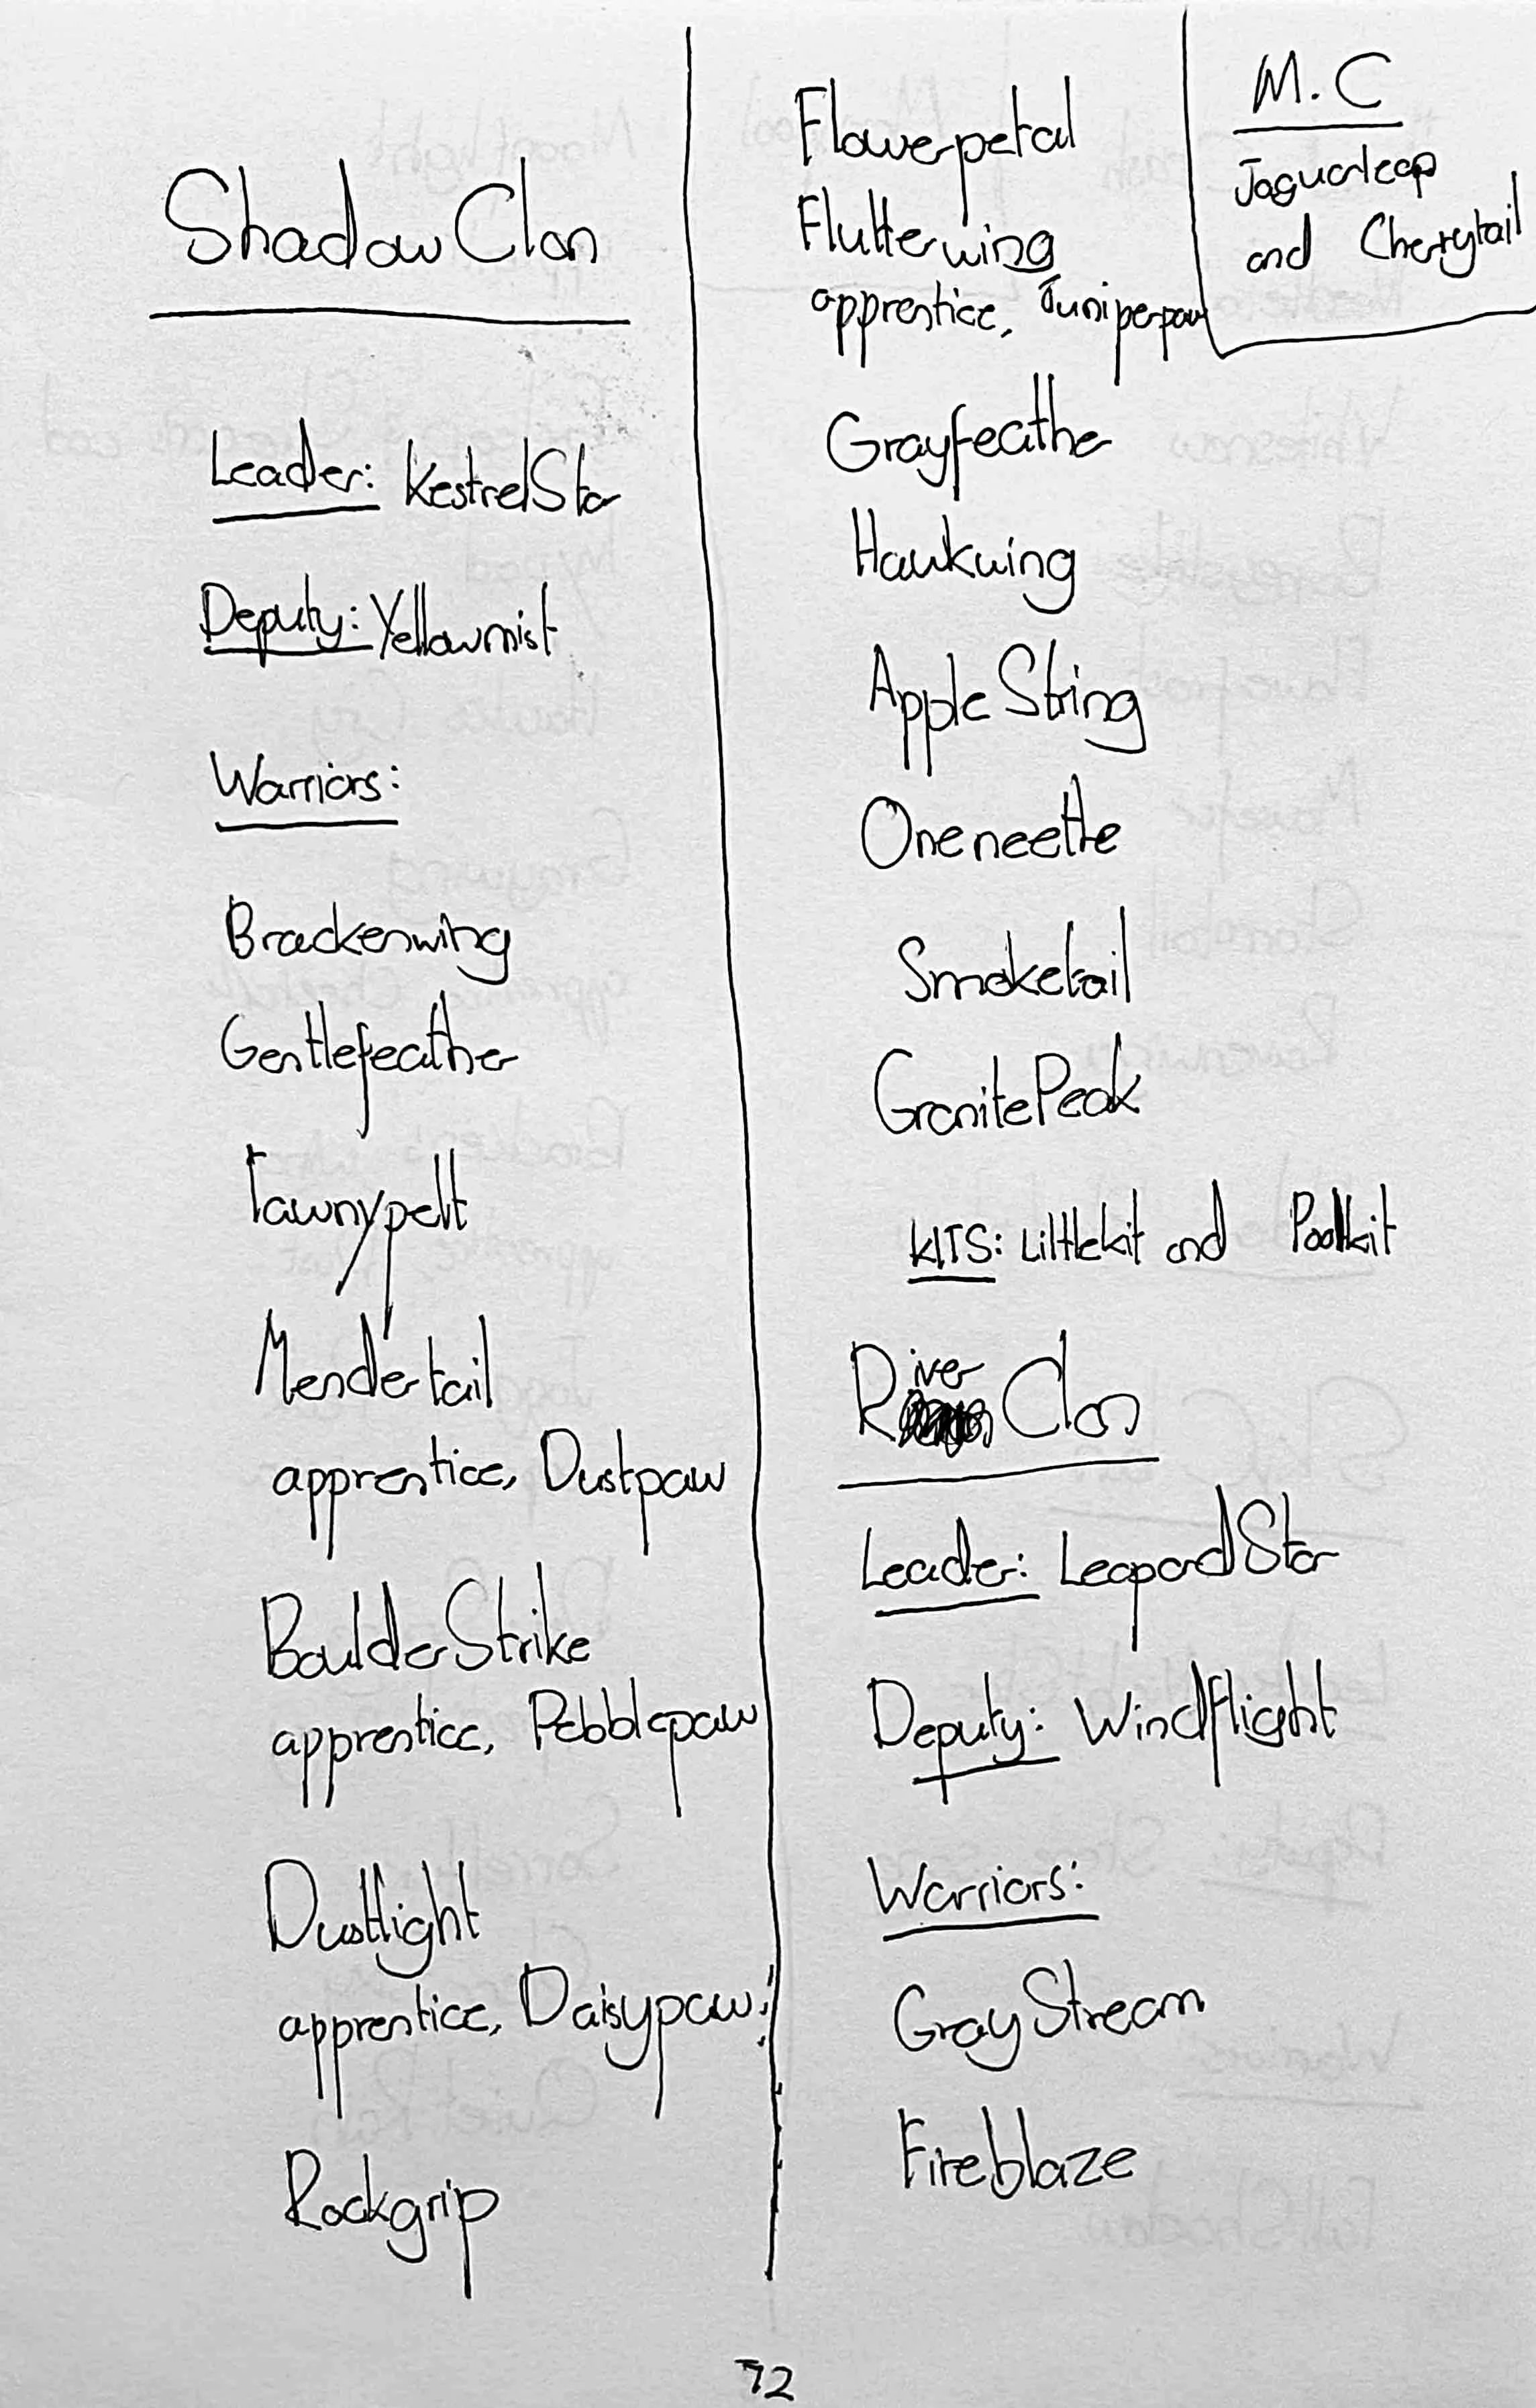 ShadowClan
Leader: KestrelStar
Deputy: Yellowmist
Warriors:
Brackenwing
Gentlefeather
Tawnypelt
Mendertail
apprentice, Dustpaw
BoulderStrike
apprentice, Pebblepaw
Dustlight
apprentice, Daisypaw
Rockgrip
Flowerpetal
Flutterwing
apprentice, Juniperpaw
Grayfeather
Hawkwing
AppleString
Oneneetle
Smoketail
GranitePeak
KITS: Littlekit and Poolkit
M.C
Jaguarleap
and Cherrytail
RiverClan
Leader: LeopardStar
Deputy: Windflight
Warriors:
GrayStream
Fireblaze
72